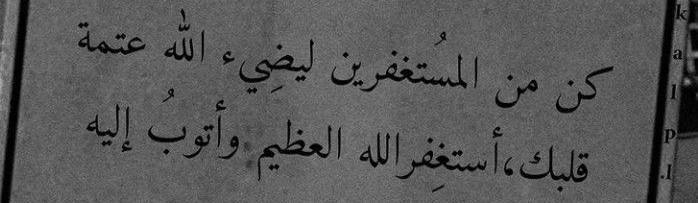 كن من المسُتغفرين ليضِيء الله عتمة
قلبك،أستغفِرالله العظيم وأتوبُ إليه
k
a
l
p
1.